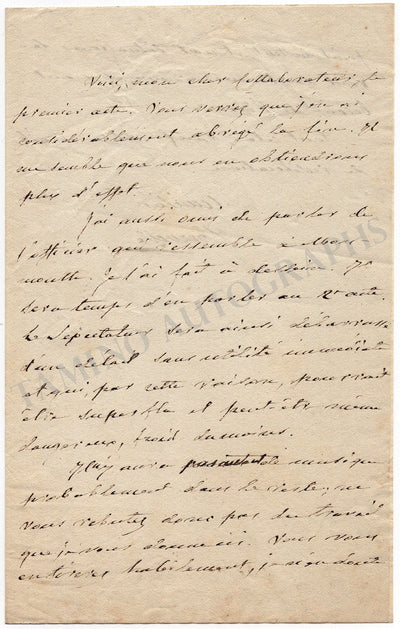 Voici, mon cher Collaborateur, le
premier acte. Vous verrez que j'en ai
considérablement abrégé la fin. Il
me semble que nous en obtiendrons
plus d'effet.
J'ai aussi omis de parler de
l'officier qui ressemble à Mon
mouth. Je l'ai fait à dessein. Il
sera temps d'en parler au 2e acte.
Le Spectateur sera ainsi débarrassé
d'un détail sans utilité immédiate
et qui par cette raison, pourrait
être superflu et peut-être même
dangereux, froid du moins.
Il n'y aura de musique
probablement dans le reste; ne
vous rebutez donc pas du travail
que je vous donne ici. Vous vous
en tirerez habilement, je n'en doute
TAMINO AUTOGRAPHS